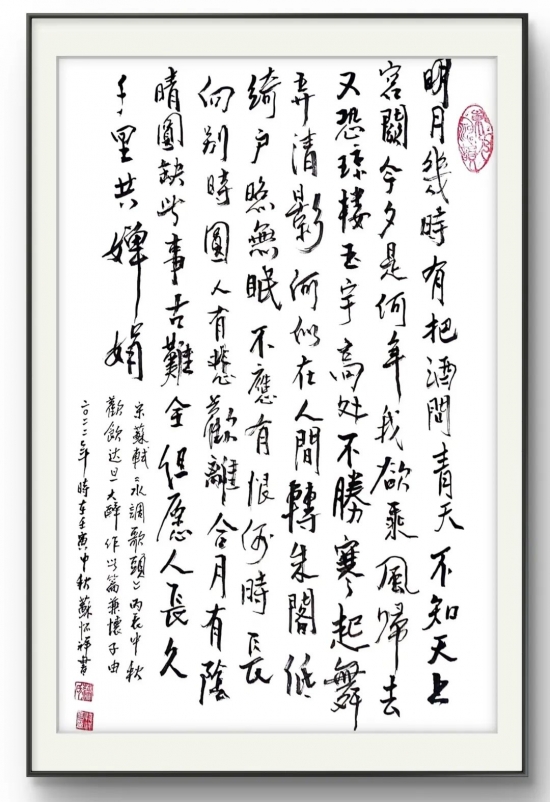 明月幾時有把酒問青天不知天上
宮闕今夕是何年我欲乘風歸去
又恐琼樓玉宇高处不勝寒起舞
弄清影何似在人間轉朱閣低
綺户照無眠不應有恨何時長
向别時圓人有悲歡離合月有陰
晴圓缺此事古難全但愿人長久
千里共嬋娟
宋蘇軾《水調歌頭》丙辰中秋
歡飲达旦大醉作此篇兼懷子由
二〇二二年時在壬寅中秋蘇怀祥書